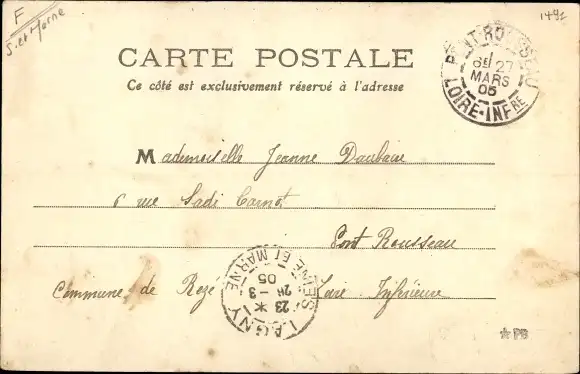 F
S. et Marne
1491
CARTE POSTALE
Ce côté est exclusivement réservé à l'adresse
PONT-ROUSSEAU
6E 27
MARS
05
LOIRE-INFRE
Mademoiselle Jeanne
6 rue Sadi Carnot
Pont Rousseau
Commune de Rezé Loire Inférieure
LAGNY
23
2H - 3
05
SEINE ET MARNE
*PB